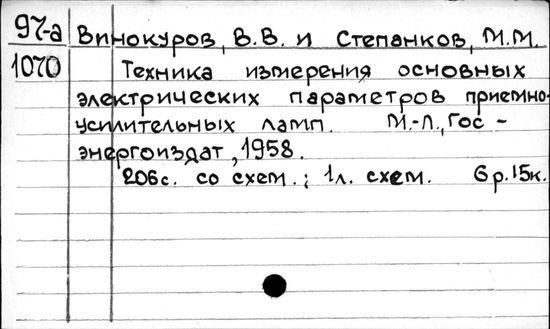 97-а Винокуров, В.В. и Степанков, М.М.
1070 Техника измерения основных
электрических параметров приемно-
усилительных ламп. М.-Л., Гос-
энергоиздат, 1958.
206с. со схем.; 1л. схем. 6р.15к.